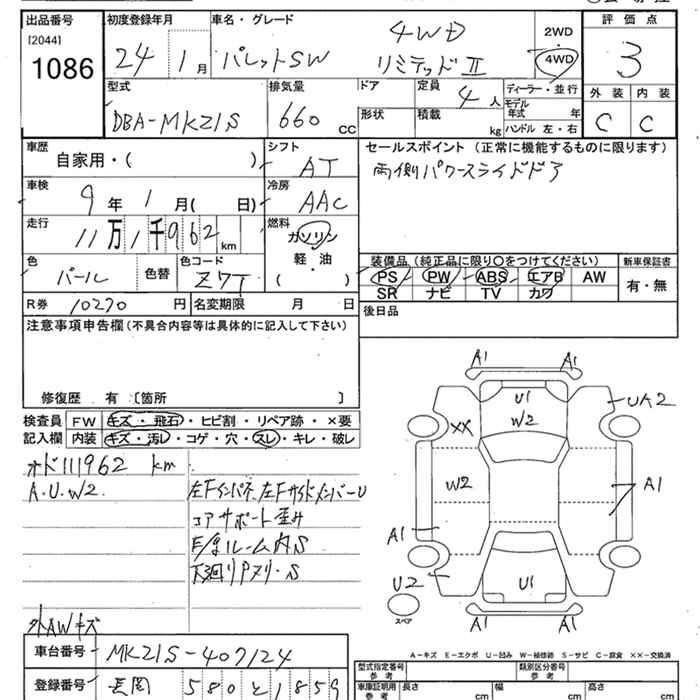 出品番号 初度登録年月 車名・グレード 評価点
[2044]
1086
24年1月 パレットSW 4WD リミテッドⅡ 2WD 4WD 3
型式 排気量 ドア 定員 ディーラー・並行 外装 内装
DBA-MK21S 660 cc 4人 モデル年式 年 C C
形状 積載 kg ハンドル 左・右
車歴 シフト セールスポイント (正常に機能するものに限ります)
自家用・( ) AT 両側パワースライドドア
車検 冷房
9年1月( 日) AAC
走行 燃料
11万1千962km ガソリン
軽・油
( )
色 色替 色コード
パール Z7T
装備品 (純正品に限り〇をつけてください) 新車保証書
PS PW ABS エアB AW 有・無
SR ナビ TV カワ
R券 10270円 名変期限 月 日 後日品
注意事項申告欄 (不具合内容等は具体的に記入して下さい)
修復歴 有 〔箇所 〕
検査員 FW キズ・飛石・ヒビ割・リペア跡・×要
記入欄 内装 キズ・汚レ・コゲ・穴・スレ・キレ・破レ
オド111962 km
A.U.W2. 左Fインパネ、左FサイドメンバーU
コアサポート歪み
F/gルーム内S
下廻りPヌリ・S
外AWキズ
A1 A1
U1
W2
UA2
XX
W2
A1
A1
U2
U1
A1 A1
スペア
A-キズ E-エクボ U-凹み W-補修跡 S-サビ C-腐食 ××-交換済
車台番号 MK21S-407124
型式指定番号 参考 類別区分番号 参考
登録番号 長岡 580と1859
車庫証明用 参考 長さ cm 幅 cm 高さ cm